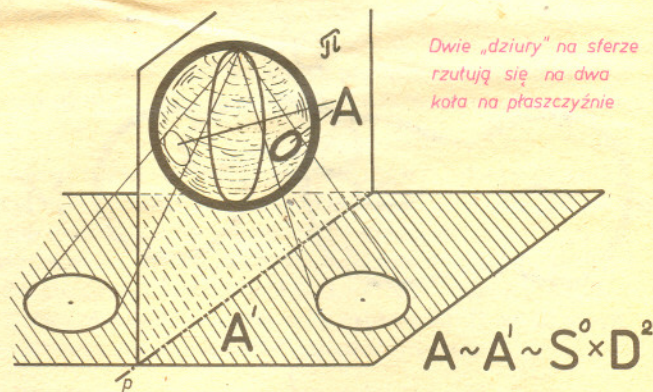 π
Dwie „dziury" na sferze
rzutują się na dwa
koła na płaszczyźnie
A
A'
p
A~A'~S⁰×D²